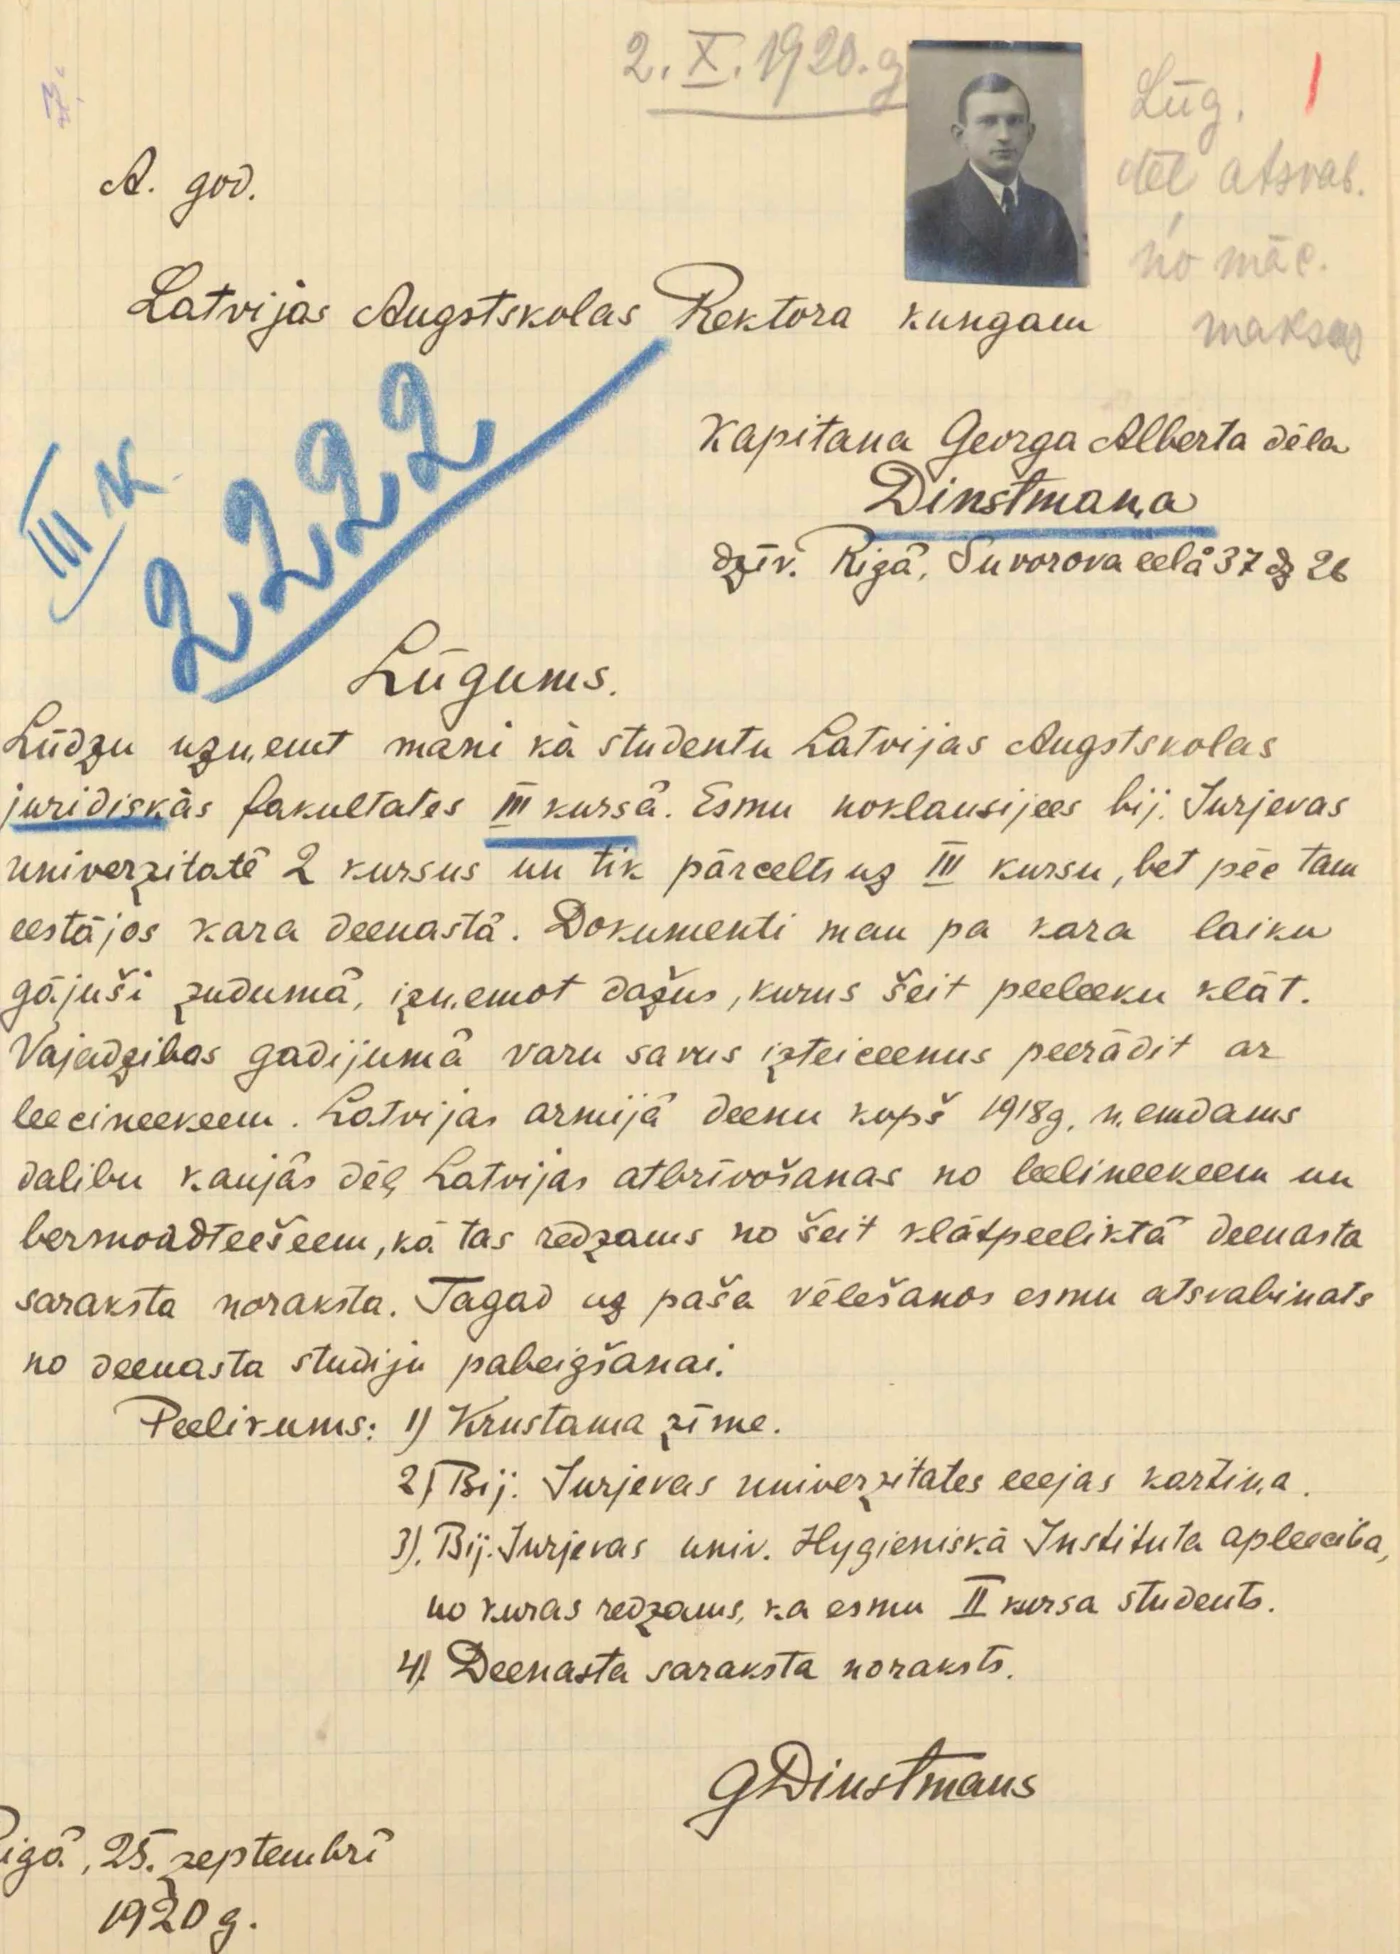 2. X. 1920. g
Lūg.
dēl atsvab.
no māc.
maksas
A. god.
Latvijas Augstskolas Rektora kungam
III k.
2222
Kapitana Georga Alberta dēla
Dinstmaņa
dzīv. Rigā, Suvorova eelā 37 dz 26
Lūgums.
Lūdzu uzņemt mani kā studentu Latvijas Augstskolas
juridiskās fakultates III kursā. Esmu noklausijees bij. Jurjevas
univerzitatē 2 kursus un tik pārcelts uz III kursu, bet pēc tam
eestājos kara deenastā. Dokumenti man pa kara laiku
gājuši zudumā, izņemot dažus, kurus šeit peeleeku klāt.
Vajadzibas gadijumā varu savus izteiceenus peerādit ar
leecineekeem. Latvijas armijā deenu kopš 1918g, ņemdams
dalibu kaujās dēļ Latvijas atbrīvošanas no leelineekeem un
bermondteešeem, kā tas redzams no šeit klātpeeliktā deenasta
saraksta noraksta. Tagad uz paša vēlešanos esmu atsvabinats
no deenasta studiju pabeigšanai.
Peelikums: 1) Krustama zīme.
2) Bij. Jurjevas univerzitates eeejas kartiņa.
3). Bij. Jurjevas univ. Hygieniskā Instituta apleeciba,
no kuras redzams, ka esmu II kursa students.
4). Deenasta saraksta noraksts.
GDinstmans
Rigā, 25. septembrī
1920 g.